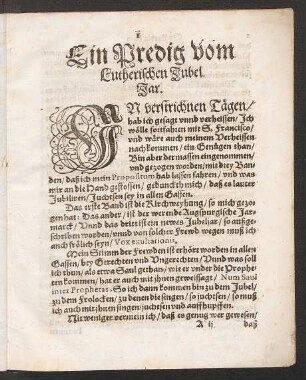 1
Ein Predig vom
Lutherischen Jubel
Jar.
IN verstrichnen Tägen/
hab ich gesagt vnnd verheissen/ Ich
wölle fortfahren mit S. Francisco/
vnd wäre auch meinem Verheissen
nachkommen/ ein Genügen than/
Bin aber dermassen eingenommen/
vnd gezogen worden/ mit drey Ban-
den/ daß ich mein Propositum hab lassen fahren/ vnd was
mir an die Hand gestossen/ gedunckt mich/ daß es lauter
Jubiliren/ Juchtsen sey in allen Gassen.
Das erste Band ist die Kirchweyhung/ so mich gezo-
gen hat: Das ander/ ist der werende Augspurgische Jar-
marckt/ Vnnd das dritt ist ein newes Jubeljar/ so außge-
schriben worden/ vnnd von solcher Frewd wegen muß ich
auch frölich seyn/ Vox exultationis,
Mein Stimm der Frewden ist erhört worden in allen
Gassen/ bey Gerechten vnd Vngerechten/ Vnnd was soll
ich thun/ als etwa Saul gethan/ wie er vnder die Prophe-
ten kommen/ hat er auch mit ihnen geweissagt/ Num Saul
inter Prophetas: So ich dann kommen bin zu dem Jubel/
zu dem Frolocken/ zu denen die singen/ so juchtsen/ so muß
ich auch mit ihnen singen/ juchtsen vnd auffhupffen.
Nit weniger vermein ich/ daß es genug wer gewesen/
A ij daß